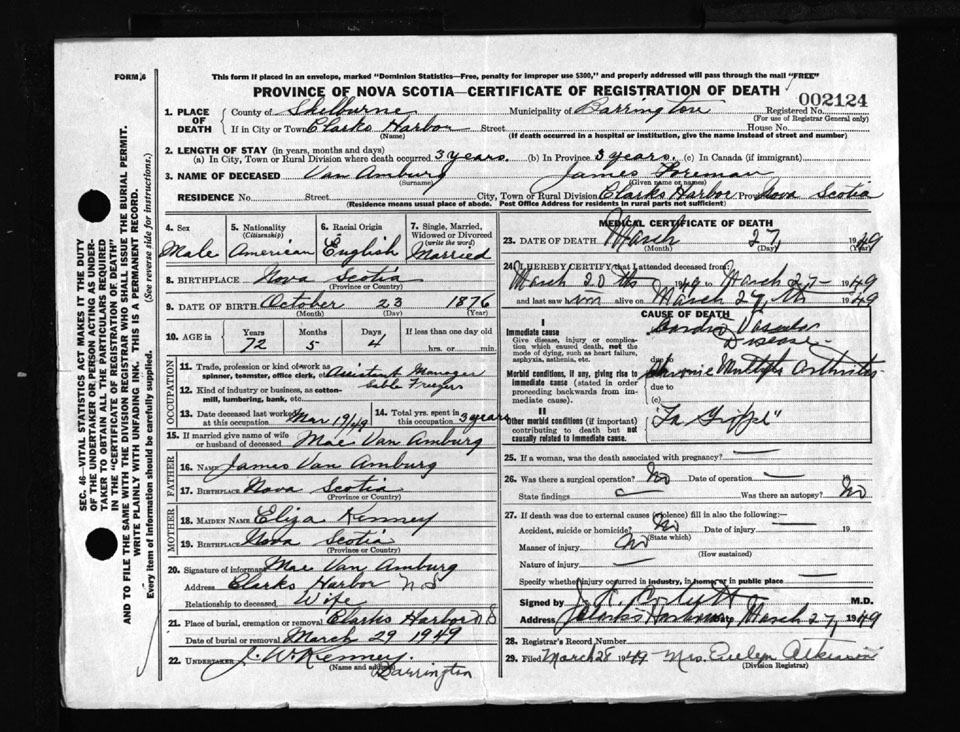 FORM 6
This form if placed in an envelope, marked "Dominion Statistics—Free, penalty for improper use $300," and properly addressed will pass through the mail "FREE"
PROVINCE OF NOVA SCOTIA—CERTIFICATE OF REGISTRATION OF DEATH
002124
1. PLACE OF DEATH
County of Shelburne Municipality of Barrington Registered No.
(For use of Registrar General only)
If in City or Town Clarks Harbor Street House No.
(Name) (If death occurred in a hospital or institution, give the name instead of street and number)
2. LENGTH OF STAY (in years, months and days)
(a) In City, Town or Rural Division where death occurred 3 years. (b) In Province 3 years. (c) In Canada (if immigrant)
3. NAME OF DECEASED Van Amburg James Foreman
(Surname) (Given name or names)
RESIDENCE No. Street City, Town or Rural Division Clarks Harbor Prov Nova Scotia
(Residence means usual place of abode. Post Office Address for residents in rural parts not sufficient)
4. Sex
Male
5. Nationality
(Citizenship)
American
6. Racial Origin
English
7. Single, Married, Widowed or Divorced
(write the word)
Married
8. BIRTHPLACE Nova Scotia
(Province or Country)
9. DATE OF BIRTH October 23 1876
(Month) (Day) (Year)
10. AGE in
Years Months Days If less than one day old
72 5 4 hrs. or min.
OCCUPATION
11. Trade, profession or kind of work as Assistant Manager
spinner, teamster, office clerk, etc.
12. Kind of industry or business, as cotton-mill, lumbering, bank, etc.
13. Date deceased last worked at this occupation Mar 19/49
14. Total yrs. spent in this occupation 3 years
15. If married give name of wife or husband of deceased Mae Van Amburg
FATHER
16. Name James Van Amburg
17. Birthplace Nova Scotia
(Province or Country)
MOTHER
18. Maiden Name Eliza Kenney
19. Birthplace Nova Scotia
(Province or Country)
20. Signature of informant Mae Van Amburg
Address Clarks Harbor N S
Relationship to deceased Wife
21. Place of burial, cremation or removal Clarks Harbor N S
Date of burial or removal March 29 1949
22. Undertaker J. W. Kenney.
(Name and address)
Barrington
MEDICAL CERTIFICATE OF DEATH
23. DATE OF DEATH March 27, 1949
(Month) (Day) (Year)
24. I HEREBY CERTIFY that I attended deceased from
March 20th 1949 to March 27 1949
and last saw him alive on March 27th 1949
CAUSE OF DEATH
I
Immediate cause
Give disease, injury or complication which caused death, not the mode of dying, such as heart failure, asphyxia, asthenia, etc.
Cardio Vascular
Disease
Morbid conditions, if any, giving rise to immediate cause (stated in order proceeding backwards from immediate cause).
due to
Chronic Multiple Arthritis
due to
(c)
II
Other morbid conditions (if important) contributing to death but not causally related to immediate cause.
"La Grippe"
25. If a woman, was the death associated with pregnancy?
26. Was there a surgical operation? No Date of operation 19
State findings Was there an autopsy? No
27. If death was due to external causes (violence) fill in also the following:—
Accident, suicide or homicide? No Date of injury 19
(State which)
Manner of injury No
(How sustained)
Nature of injury
Specify whether injury occurred in industry, in home or in public place
Signed by M.D.
Address Clarks Harbor Date March 27, 1949
28. Registrar's Record Number
29. Filed March 28 1949 Mrs. Evelyn Atkinson
(Division Registrar)
SEC. 46—VITAL STATISTICS ACT MAKES IT THE DUTY
OF THE UNDERTAKER OR PERSON ACTING AS UNDER-
TAKER TO OBTAIN ALL THE PARTICULARS REQUIRED
IN THE "CERTIFICATE OF REGISTRATION OF DEATH"
AND TO FILE THE SAME WITH THE DIVISION REGISTRAR WHO SHALL ISSUE THE BURIAL PERMIT.
WRITE PLAINLY WITH UNFADING INK. THIS IS A PERMANENT RECORD.
Every item of information should be carefully supplied. (See reverse side for instructions.)